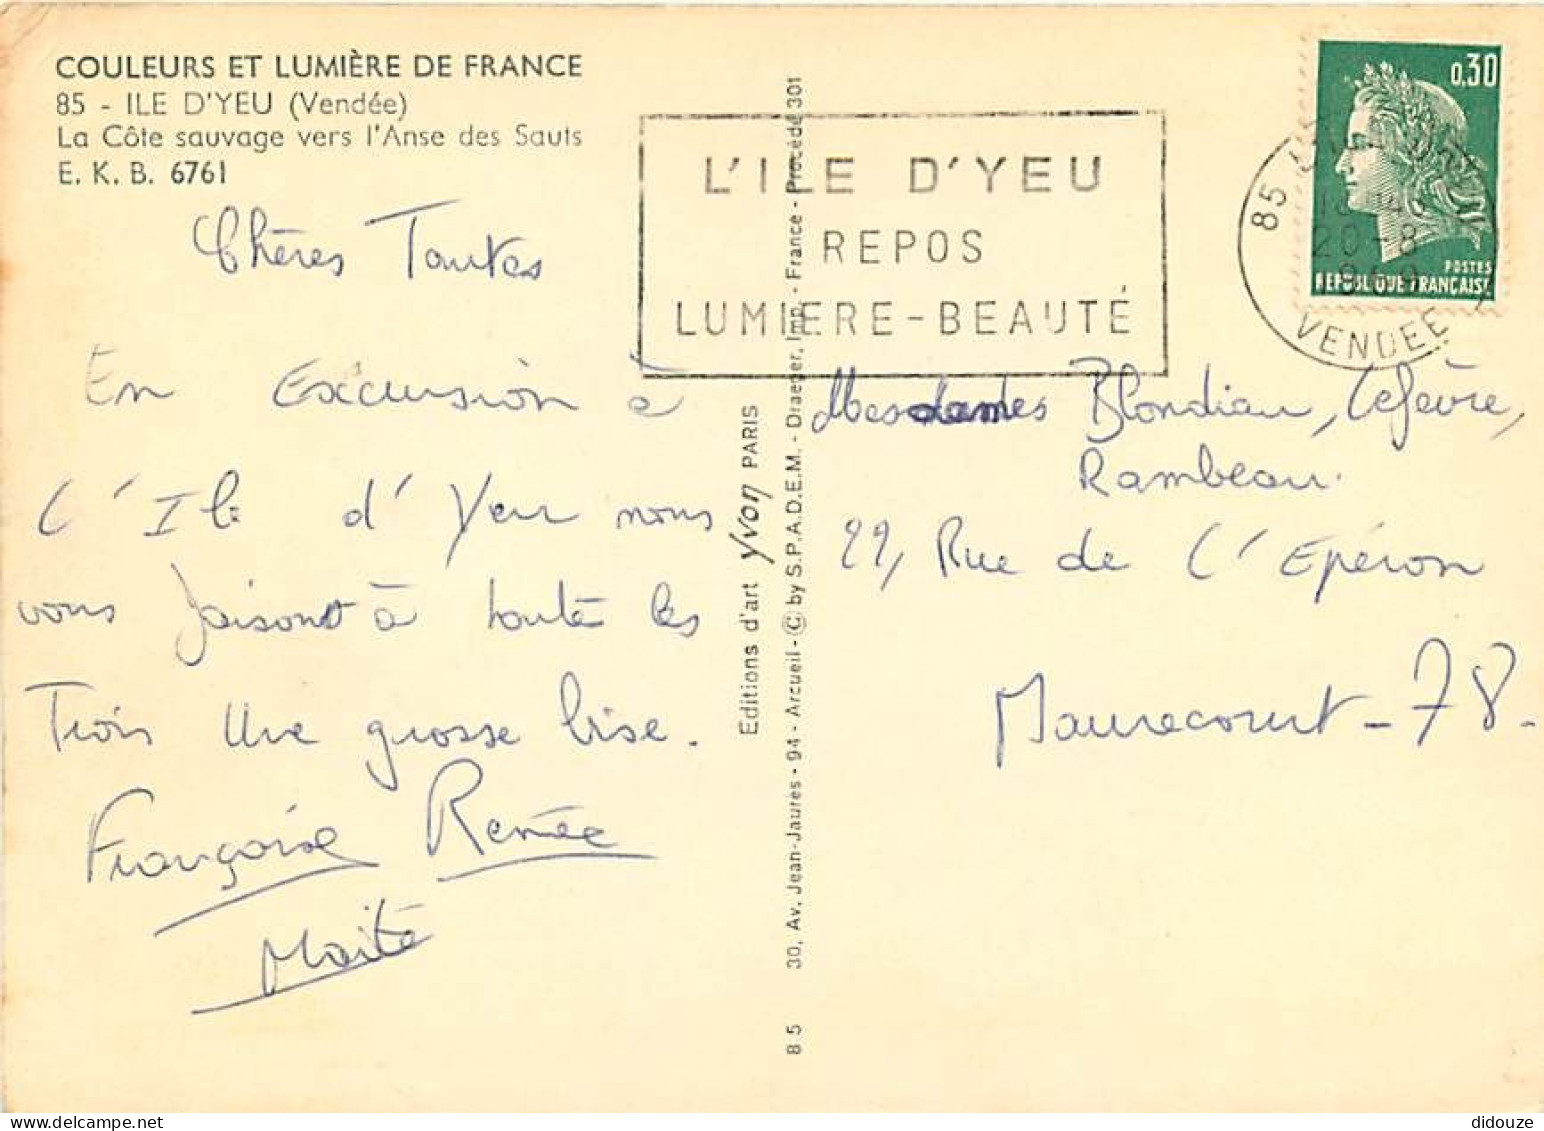 COULEURS ET LUMIÈRE DE FRANCE
85 - ILE D'YEU (Vendée)
La Côte sauvage vers l'Anse des Sauts
E. K. B. 6761
Chères Tantes
En Excursion à
l'Ile d'Yeu nous
vous faisont à toute les
Trois une grosse bise.
Françoise Renée
Maïté
L'ILE D'YEU
REPOS
LUMIERE-BEAUTÉ
0,30
POSTES
REPUBLIQUE FRANÇAISE
85
20-8
VENDEE
Editions d'art Yvon PARIS
85 30, Av. Jean-Jaures - 94 - Arcueil - © by S.P.A.D.E.M. - Draeger, Imp. - France - Procédé 301
Mesdames Blondiau, Lefèvre,
Rambeau.
22, Rue de l'Epéron
Maurecourt - 78.
didouze